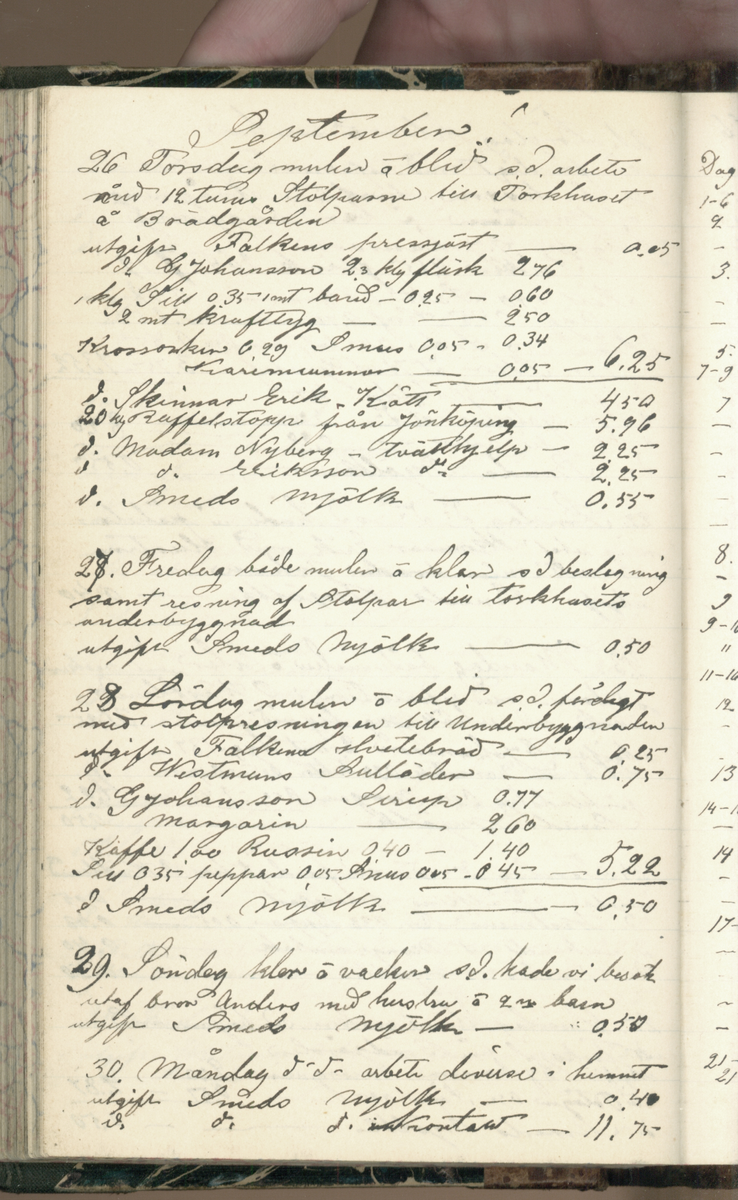 September.
26 Torsdag mulen å blid s.d. arbete
med 12 tums Stolparne till Torkhuset
å Brädgården
utgift Falkens pressjäst — 0.05
d. G Johansson 2,3 klg fläsk 276
1 klg Sill 0,35 1 mt band - 0.25 - 060
2 mt kraftlyg — — 250
Krossocker 0,29 Smus 0,05 - 0.34
— 0,05 — 6.25
d. Skinnar Erik - Kött — 450
20 kg Kaffelstopp från Jönköping — 5.96
d. Madam Nyberg - tvätthjelp — 2.25
d d. Eriksson d:o — 2.25
d. Smeds Mjölk — 0.55
27. Fredag både mulen å klar s d beslagning
samt resning af Stolpar till torkhusets
underbyggnad
utgift Smeds Mjölk — 0.50
28 Lördag mulen å blid s.d. färdigt
med stolpresningen till Underbyggnaden
utgift Falkens hvetebröd — 0.25
d- Westmans — 0.75
d. G Johansson Sirup 0.77
Margarin — 260
Kaffe 1,00 Russin 040 — 1.40
Sill 035 peppar 005 Smus 005 - 045 — 5.22
d Smeds Mjölk — 0.50
29. Söndag klar å vacker s.d. hade vi besök
utaf bror Anders med hustru å 2ne barn
utgift Smeds Mjölk — 0.50
30. Måndag d-d- arbete diverse i hemmet
utgift Smeds Mjölk — 0.40
d. d. d. kontant — 11.75
Dag
1-6
2
3.
5.
7-9
7
8.
9
9-10
11
11-16
12
13
14
17-
21-
21